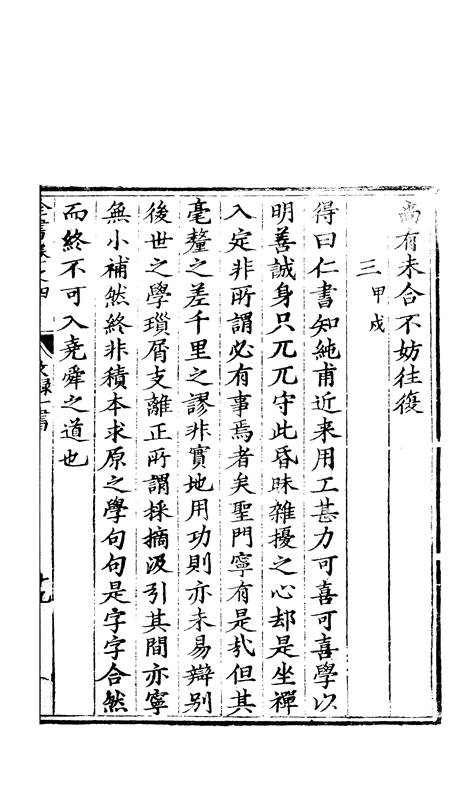 尚有未合不妨往復
三甲戌
得曰仁書知純甫近来用工甚力可喜可喜學以
明善誠身只兀兀守此昏昧雜擾之心却是坐禪
入定非所謂必有事焉者矣聖門寧有是㢤但其
毫釐之差千里之謬非實地用功則亦未易辯别
後世之學瑣屑支離正所謂採摘汲引其間亦寧
無小補然終非積本求原之學句句是字字合然
而終不可入堯舜之道也
全書卷之四 文録一書 十九